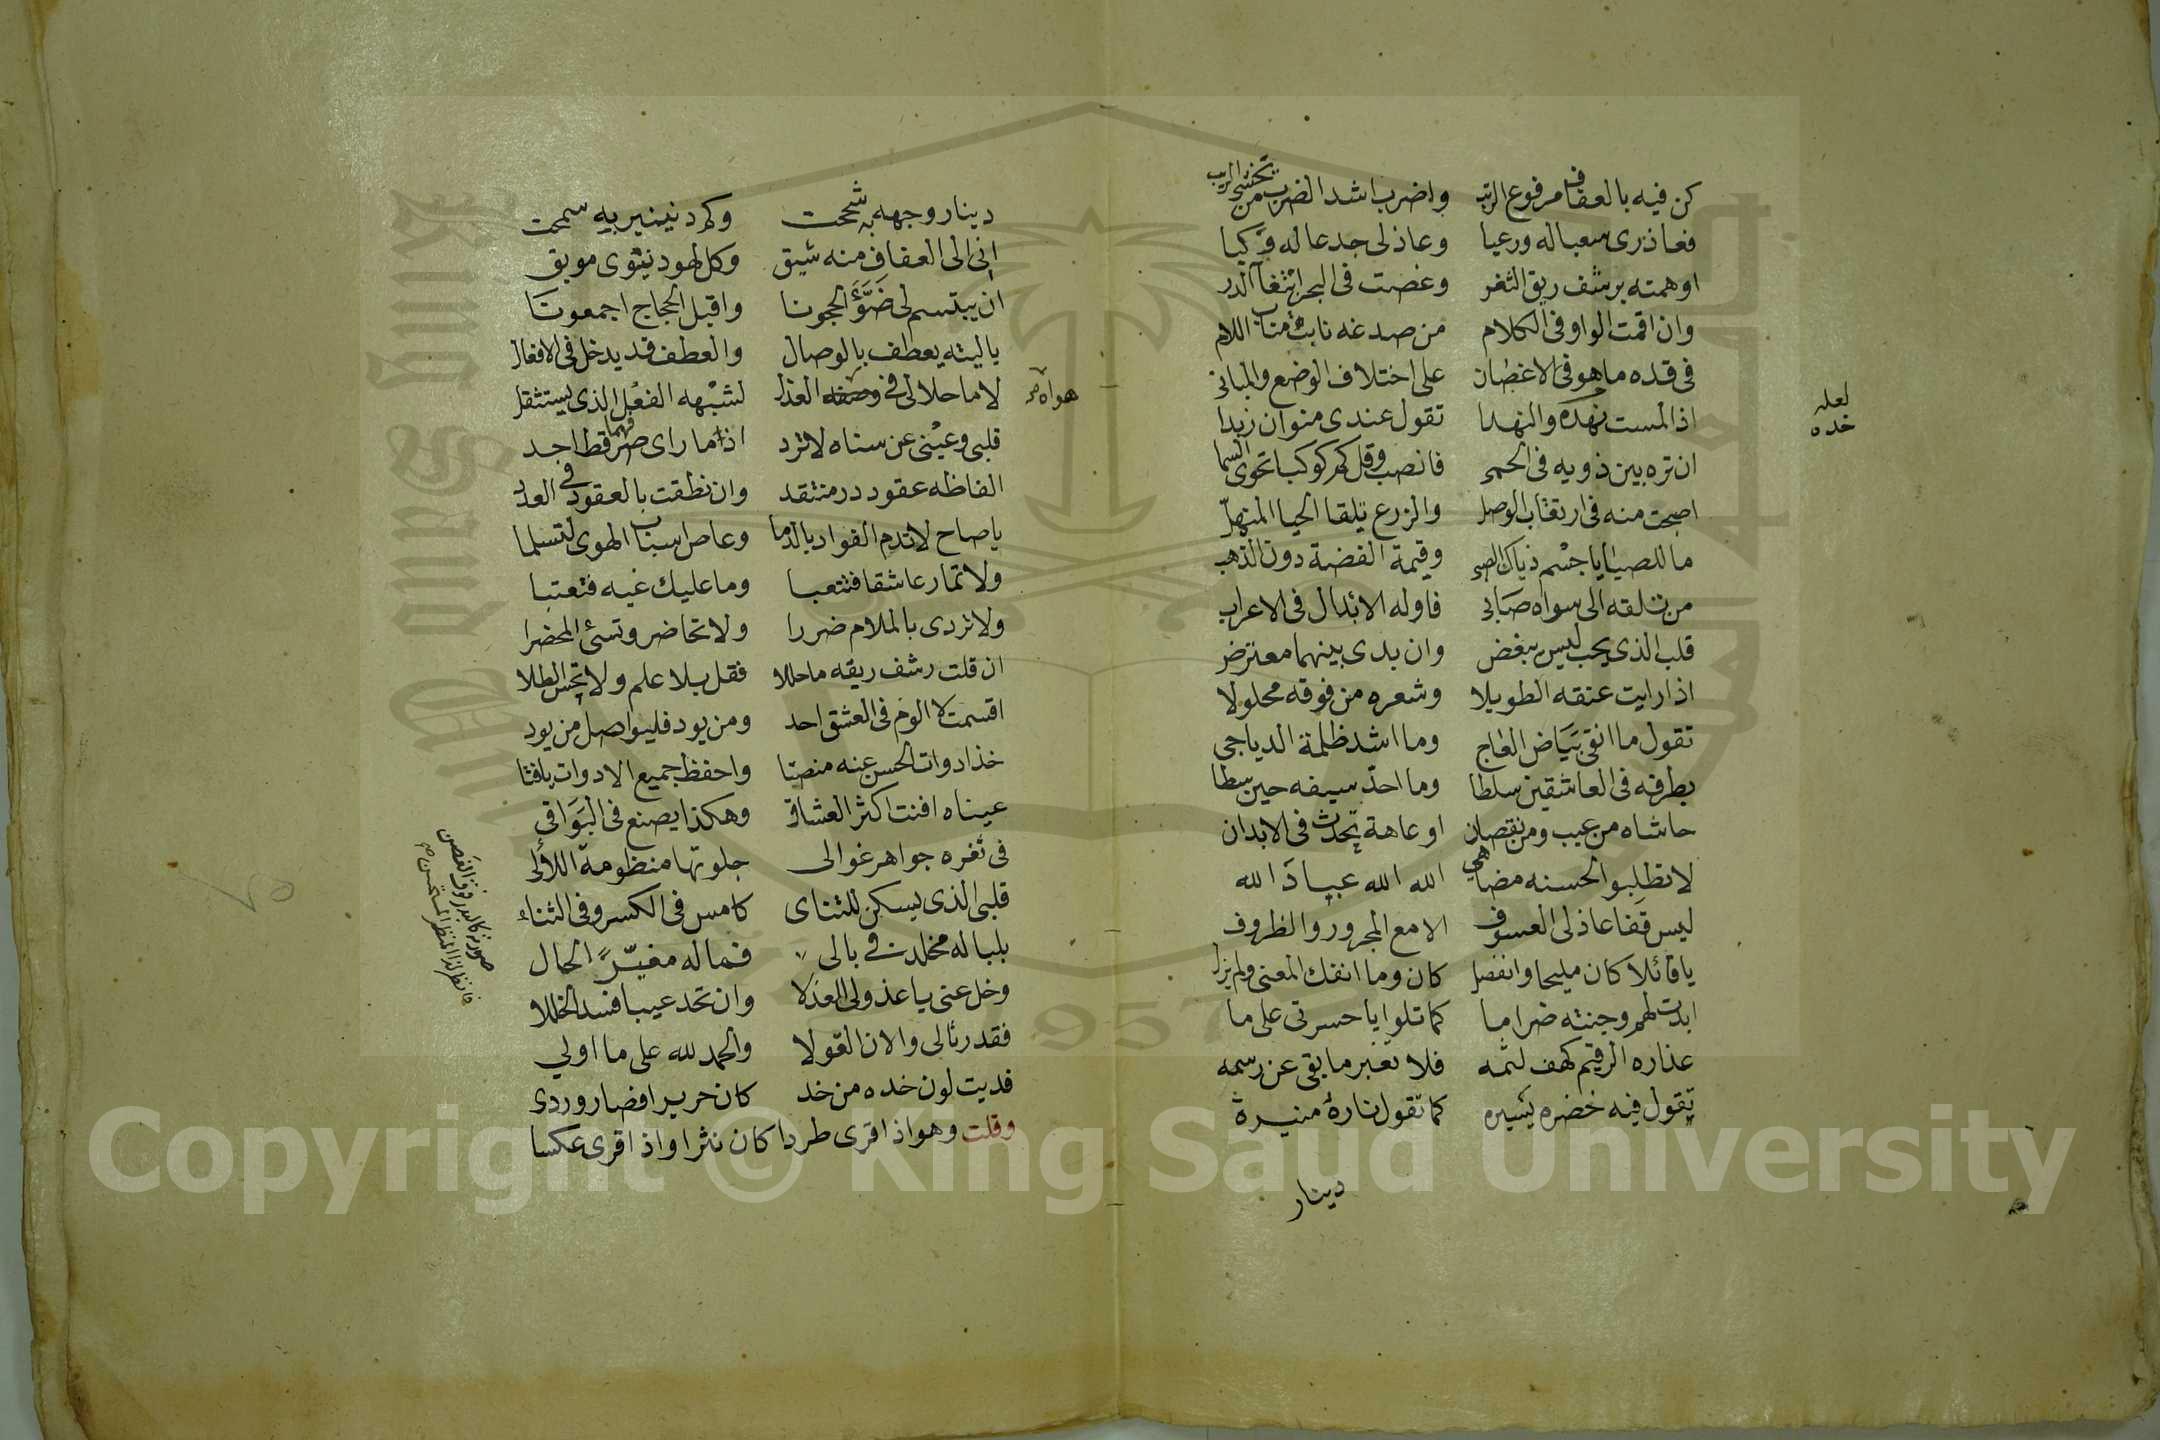 كن فيه بالعفاف مرفوع الرتب واضرب اشد الضرب من تخشى الريب
فعاذرى سعيا له ورعيا وعاذلى جدعا له وكيا
اوهمته برشف ريق الثغر وغصت فى البحر ابتغآ الدر
وان اقمت الواو فى الكلام من صدغه نابت مناب اللام
فى قده ما هو فى الاغصان على اختلاف الوضع والمبانى
اذا لمست نهده والنهدا تقول عندى منوان زبدا
لعله خده
ان تره بين ذويه فى الحمى فانصب وقل كم كوكبا تحوى السما
اصبحت منه فى ارتقاب الوصل والزرع تلقا الحيا المنهل
ما للصبايا جسم ذياك الصبى وقيمة الفضة دون الذهب
من تلقه الى سواه صابى فاوله الابدال فى الاعراب
قلب الذى يحب ليس يبغض وان بدى بينهما معترض
اذا رايت عنقه الطويلا وشعره من فوقه محلولا
تقول ما انقى بياض العاج وما اشد ظلمة الدياجى
بطرفه فى العاشقين سلطا وما احدّ سيفه حين سطا
حاشاه من عيب ومن نقصان او عاهة تحدث فى الابدان
لا تطلبوا لحسنه مضاهى الله الله عبادَ الله
ليس قفا عاذلى العسوف الا مع المجرور والظروف
يا قائلا كان مليحا وانفصل كان وما انفك المعنى ولم يزل
ابدت لهم وجنته ضراما كما تلوا يا حسرتى على ما
عذاره الرقيم كهف لثمه فلا تغير ما بقى عن رسمه
تقول فيه خضره يسيره كما تقول ناره منيرة
دينار
دينار وجهه به شحت وكم دنينير به سمحت
انى الى العفاف منه شيق وكل لهو دنيوى موبق
ان يبتسم لى ضَوَّءَ الحجونا واقبل الحجاج اجمعونا
يا ليته يعطف بالوصال والعطف قد يدخل فى الافعال
لا ما حلا لى فى وصفه العذل لشبهه الفعل الذى يستثقل
هواه صح
قلبى وعينى عن سناه لا ترد اذ ما راى صرفهما قط احد
الفاظه عقود در منتقد وان نطقت بالعقود فى العدد
يا صاح لا تدم الفواد بالدما وعاص اسباب الهوى لتسلما
ولا تمار عاشقا فتتعبا وما عليك غيه فتعتبا
ولا تردى بالملام ضررا ولا تحاضر وتسئ المحضرا
ان قلت رشف ريقه ما حللا فقل بلا علم ولا تحس الطلا
اقسمت لا الوم فى العشق احد ومن يود فليواصل من يود
خذ ادوات الحسن عنه منصتا واحفظ جميع الادوات يا فتا
عيناه افنت اكثر العشاق وهكذا يصنع فى البَوَاقى
فى ثغره جواهر غوالى جلوتها منظومة اللألى
قلبى الذى يسكن للتناى كامس فى الكسر وفى الثناء
بلباله مخلد فى بالى فما له مغيّر الحال
وخل عنى يا عذولى العذلا وان تجد عيبا فسد الخللا
فقد رثا لى والان القولا والحمد لله على ما اولي
فديت لون خده من خد كان حريرا فضار وردى
وقلت وهو اذ اقرى طردا كان نثرا واذ اقرى عكسا
صورته كالبدر فوق الغصن
فانظر لذا المنظر المستحسن صح